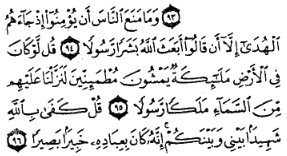 ﴿٩٣﴾ وَمَا مَنَعَ النَّاسَ أَن يُؤْمِنُوٓا۟ إِذْ جَآءَهُمُ
الْهُدَىٰٓ إِلَّآ أَن قَالُوٓا۟ أَبَعَثَ اللَّهُ بَشَرًا رَّسُولًا ﴿٩٤﴾ قُل لَّوْ كَانَ
فِى الْأَرْضِ مَلَٰٓئِكَةٌ يَمْشُونَ مُطْمَئِنِّينَ لَنَزَّلْنَا عَلَيْهِم
مِّنَ السَّمَآءِ مَلَكًا رَّسُولًا ﴿٩٥﴾ قُلْ كَفَىٰ بِاللَّهِ
شَهِيدًۢا بَيْنِى وَبَيْنَكُمْ ۚ إِنَّهُۥ كَانَ بِعِبَادِهِۦ خَبِيرًۢا بَصِيرًا ﴿٩٦﴾